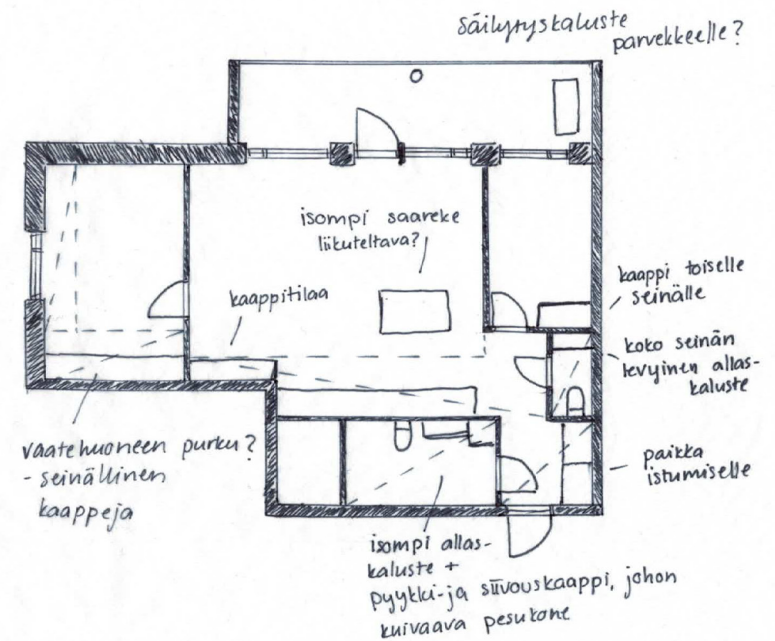 säilytyskaluste
parvekkeelle?
isompi saareke
liikuteltava?
kaappitilaa
kaappi toiselle
seinälle
koko seinän
levyinen allas-
kaluste
vaatehuoneen purku?
- seinällinen
kaappeja
paikka
istumiselle
isompi allas-
kaluste +
pyykki- ja siivouskaappi, johon
kuivaava pesukone